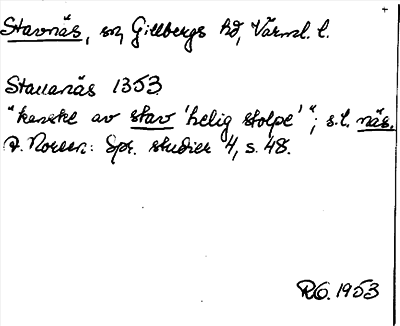 Stavnäs, sn, Gillbergs hd, Värml. l.
Stauanäs 1353
"kanske av stav 'helig stolpe'"; s.l. näs.
A. Noreen: Spr. studier 4, s. 48.
R.O. 1953